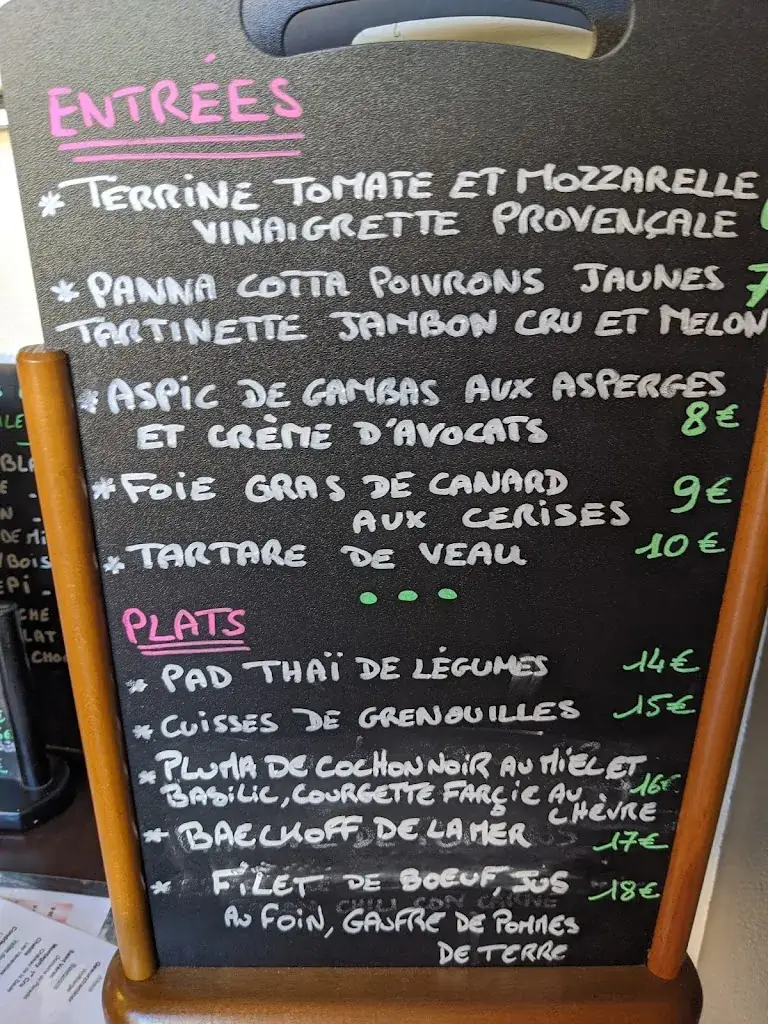 ENTRÉES
* TERRINE TOMATE ET MOZZARELLE
VINAIGRETTE PROVENÇALE
* PANNA COTTA POIVRONS JAUNES 7
TARTINETTE JAMBON CRU ET MELON
* ASPIC DE GAMBAS AUX ASPERGES
ET CRÈME D'AVOCATS 8€
* FOIE GRAS DE CANARD 9€
AUX CERISES
* TARTARE DE VEAU 10€
PLATS
* PAD THAÏ DE LÉGUMES 14€
* CUISSES DE GRENOUILLES 15€
* PLUMA DE COCHON NOIR AU MIEL ET
BASILIC, COURGETTE FARÇIE AU 16€
CHÈVRE
* BAECKOFF DE LA MER 17€
* FILET DE BOEUF, JUS 18€
CHILI CON CARNE
AU FOIN, GAUFRE DE POMMES
DE TERRE